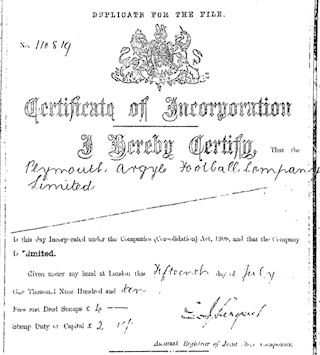 DUPLICATE FOR THE FILE.
No. 110819
Certificate of Incorporation
I Hereby Certify, That the
Plymouth Argyle Football Company
Limited
Is this day Incorporated under the Companies (Consolidation) Act, 1908, and that the Company
is Limited.
Given under my hand at London this Fifteenth day of July
One Thousand Nine Hundred and ten
Fees and Deed Stamps £ 4
Stamp Duty on Capital £ 2
Assistant Registrar of Joint Stock Companies.